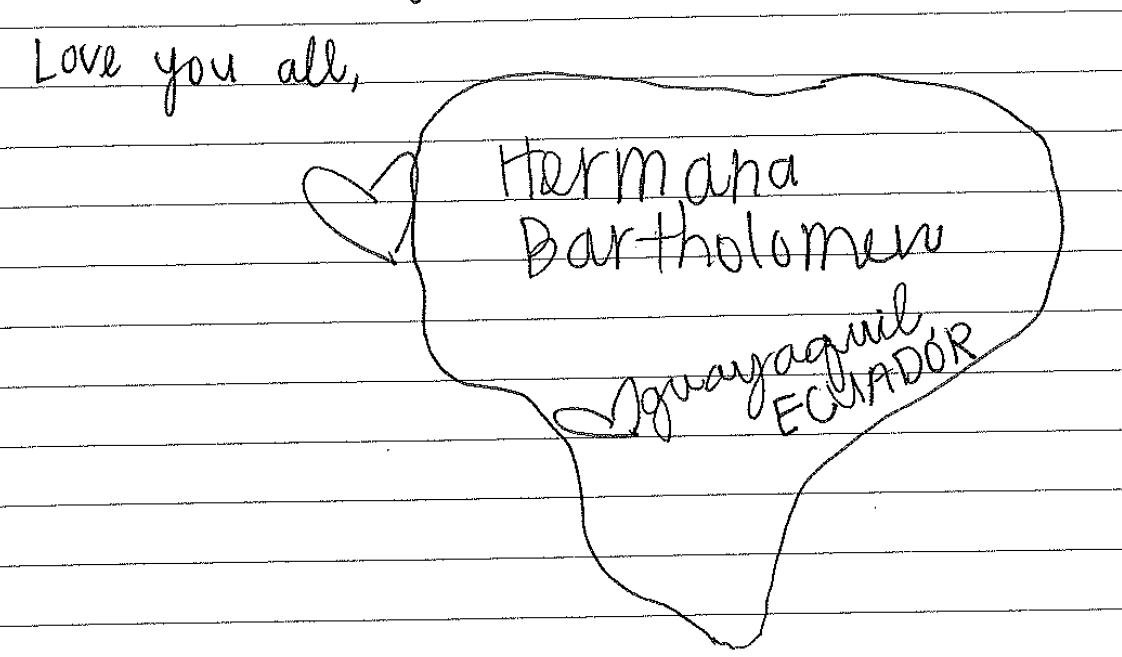 Love you all,
Hermana
Bartholomew
guayaquil
ECUADÓR